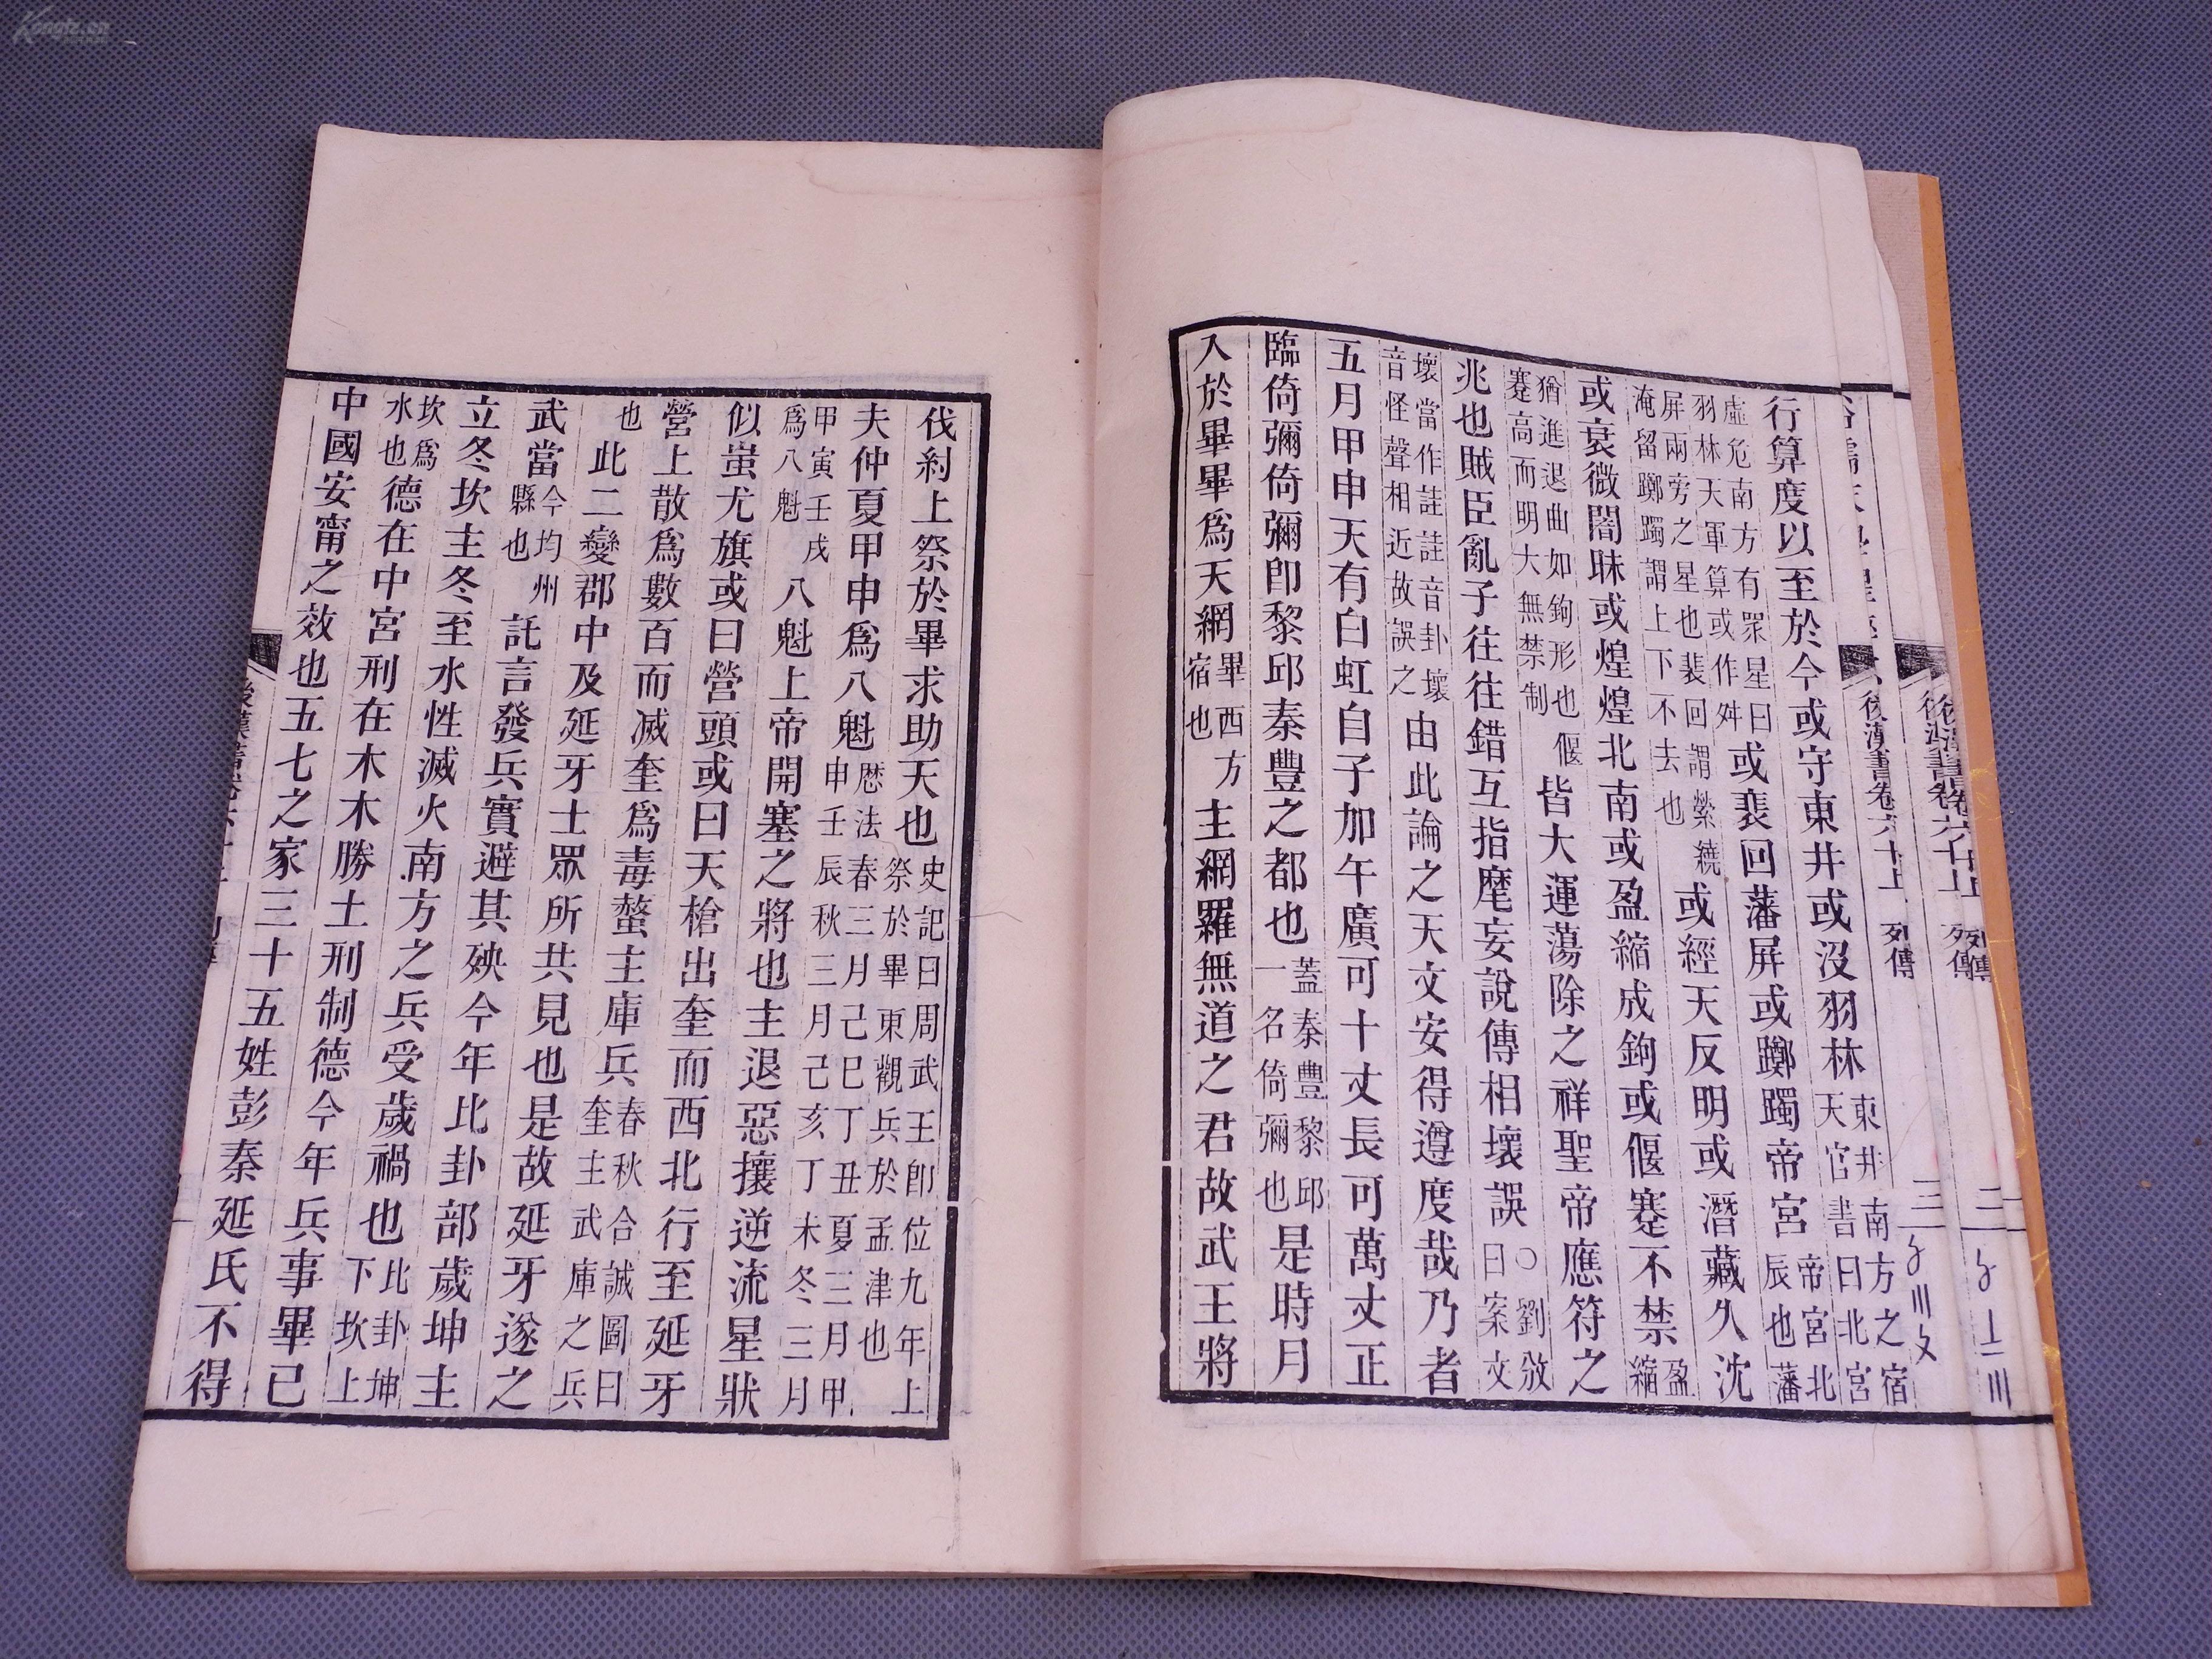 Kongfz.cn
行算度以至於今或守東井或沒羽林東井南方之宿天官書曰北宮
虛危南方有眾星曰羽林天軍算或作舛或裴回藩屏或躑躅帝宮帝宮北辰也藩
屏兩旁之星也裴回謂縈繞淹留躑躅謂上下不去也或經天反明或潛藏久沈
或衰微闇昧或煌煌北南或盈縮成鉤或偃蹇不禁盈縮
猶進退曲如鉤形也偃蹇高而明大無禁制皆大運蕩除之祥聖帝應符之
兆也賊臣亂子往往錯互指麾妄說傳相壞誤○劉攽曰案文
壞當作詿詿音卦壞音怪聲相近故誤之由此論之天文安得遵度哉乃者
五月甲申天有白虹自子加午廣可十丈長可萬丈正
臨倚彌倚彌卽黎邱秦豐之都也蓋秦豐黎邱一名倚彌也是時月
入於畢畢爲天網畢西方宿也主網羅無道之君故武王將
後漢書卷六十上 列傳
三
伐紂上祭於畢求助天也史記曰周武王卽位九年上祭於畢東觀兵於孟津也
夫仲夏甲申爲八魁歷法春三月己巳丁丑夏三月甲申壬辰秋三月己亥丁未冬三月
甲寅壬戌爲八魁八魁上帝開塞之將也主退惡攘逆流星狀
似蚩尤旗或曰營頭或曰天槍出奎而西北行至延牙
營上散爲數百而滅奎爲毒螫主庫兵春秋合誠圖曰奎主武庫之兵
也此二變郡中及延牙士眾所共見也是故延牙遂之
武當今均州縣也託言發兵實避其殃今年比卦部歲坤主
立冬坎主冬至水性滅火南方之兵受歲禍也比卦坤下坎上
坎爲水也德在中宮刑在木木勝土刑制德今年兵事畢已
中國安甯之效也五七之家三十五姓彭秦延氏不得